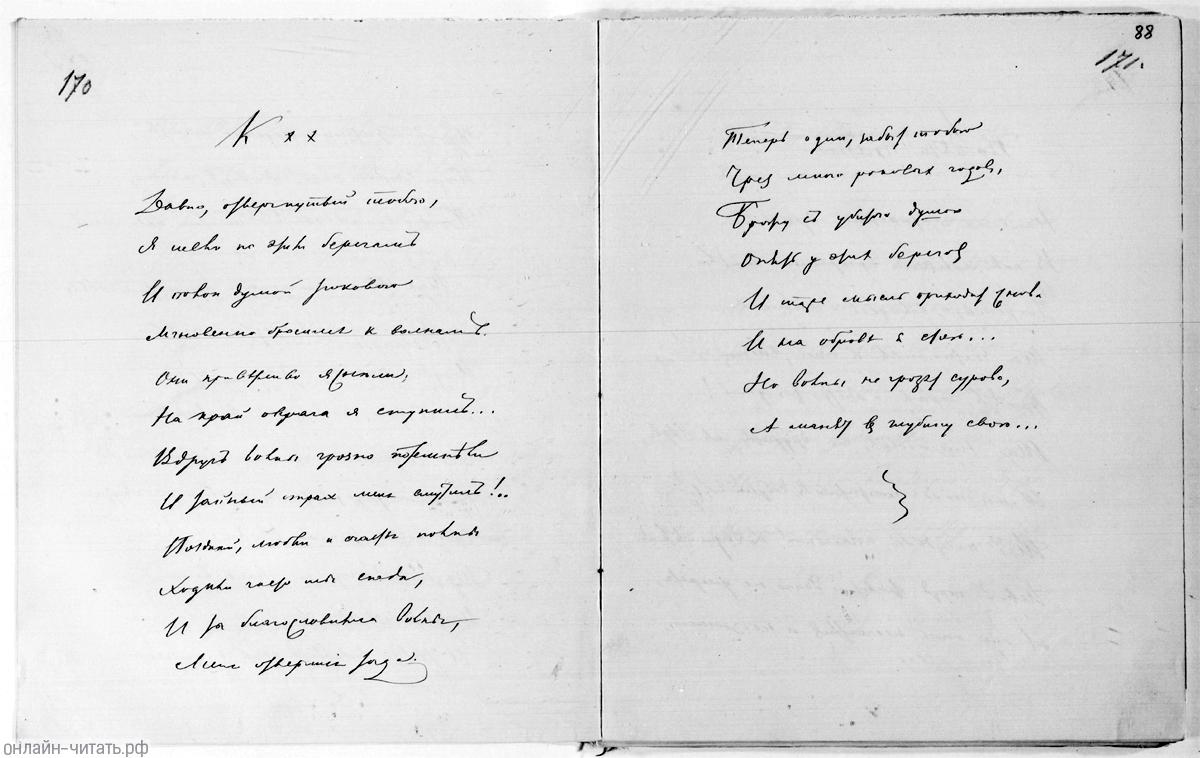 170
К х х
Давно, отвергнутый тобою,
Я шелъ по этим берегамъ
И полон думой роковою
Мгновенно бросился к волнамъ.
Они привѣтливо яснѣли,
На край обрыва я ступилъ...
Вдругъ волны грозно потемнѣли
И тайный страх меня смутилъ!..
Поздней, любви и счастья полны
Ходили часто мы сюда,
И ты благословляла волны,
Меня отвергшія тогда
88
171.
Теперь один, забыт тобою
Чрез много роковых годов,
Брожу съ убитою душою
Опять у этих берегов
И та же мысль приходит снова
И на обрыве я стою...
Но волны не грозят сурово,
А манят в глубину свою...
онлайн-читать.рф